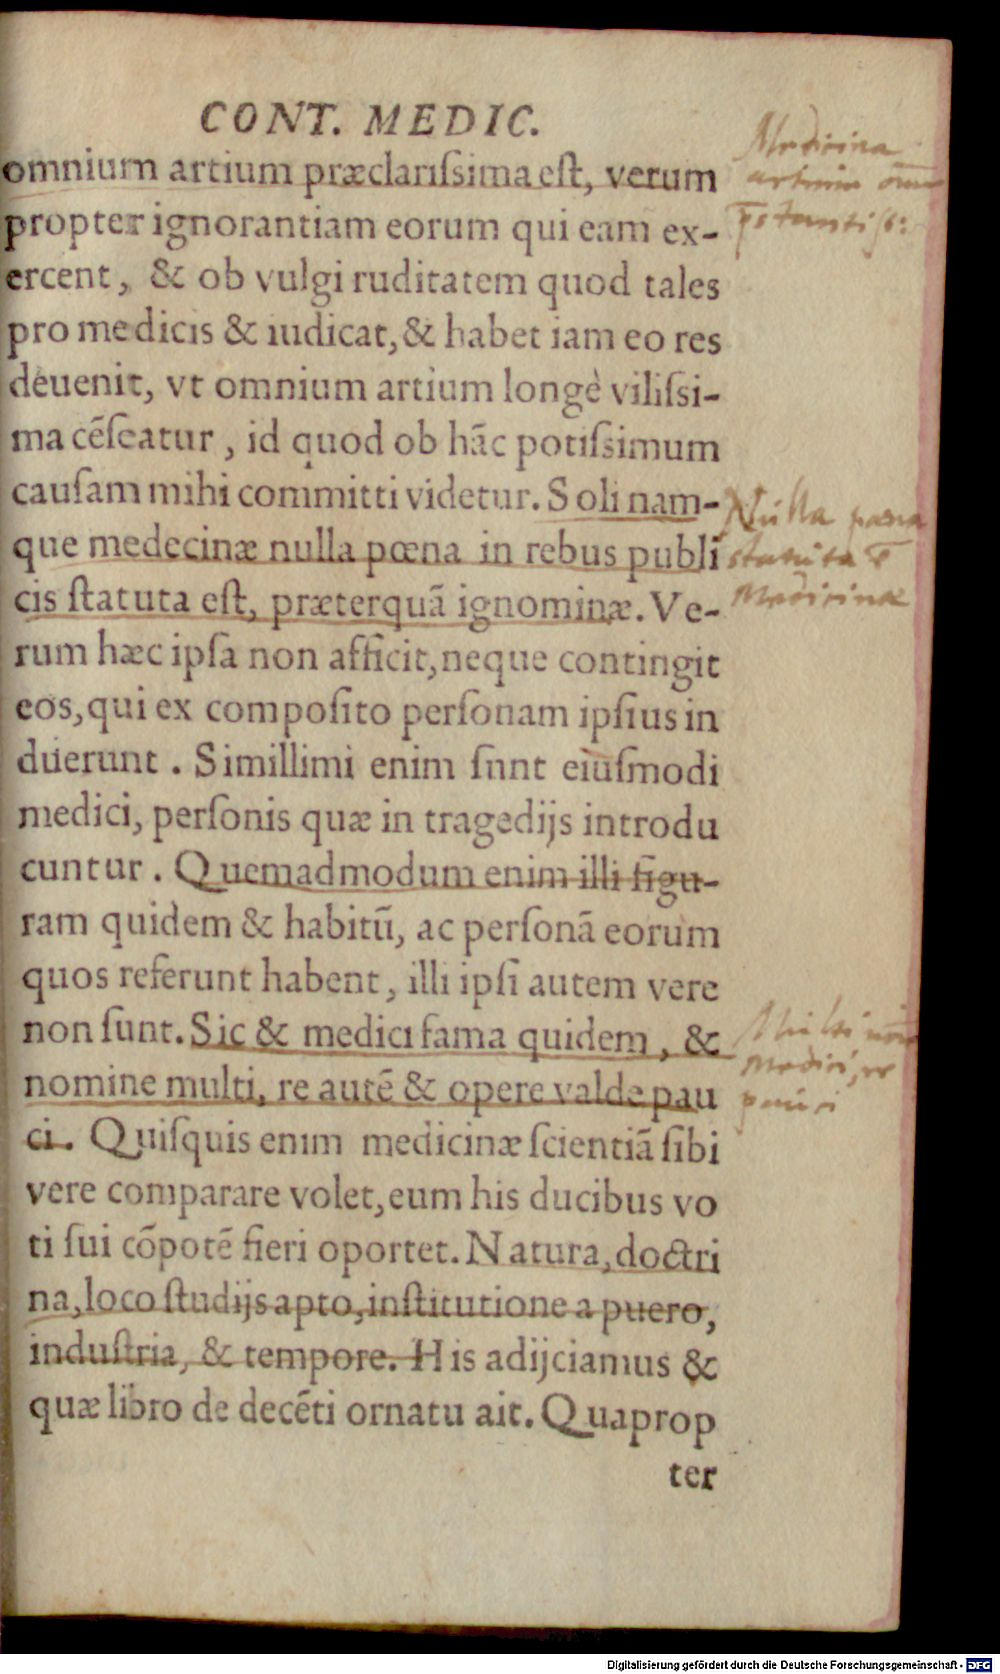 CONT. MEDIC.
omnium artium præclariſsima eſt, verum
propter ignorantiam eorum qui eam ex-
ercent, & ob vulgi ruditatem quod tales
pro medicis & iudicat, & habet iam eo res
deuenit, vt omnium artium longè viliſsi-
ma cēſeatur, id quod ob hāc potiſsimum
cauſam mihi committi videtur. Soli nam-
que medecinæ nulla pœna in rebus publi
cis ſtatuta eſt, præterquā ignominæ. Ve-
rum hæc ipſa non afficit, neque contingit
eos, qui ex compoſito perſonam ipſius in
duerunt. Simillimi enim ſunt eiuſmodi
medici, perſonis quæ in tragedijs introdu
cuntur. Quemadmodum enim illi figu-
ram quidem & habitū, ac perſonā eorum
quos referunt habent, illi ipſi autem vere
non ſunt. Sic & medici fama quidem, &
nomine multi, re autē & opere valde pau
ci. Quiſquis enim medicinæ ſcientiā ſibi
vere comparare volet, eum his ducibus vo
ti ſui cōpotē fieri oportet. Natura, doctri
na, loco ſtudijs apto, inſtitutione a puero,
induſtria, & tempore. His adijciamus &
quæ libro de decēti ornatu ait. Quaprop
ter
Medicina
artium
Nulla pœna
statuta
Medicinæ
Multi
Medici, re
pauci
Digitalisierung gefördert durch die Deutsche Forschungsgemeinschaft - DFG